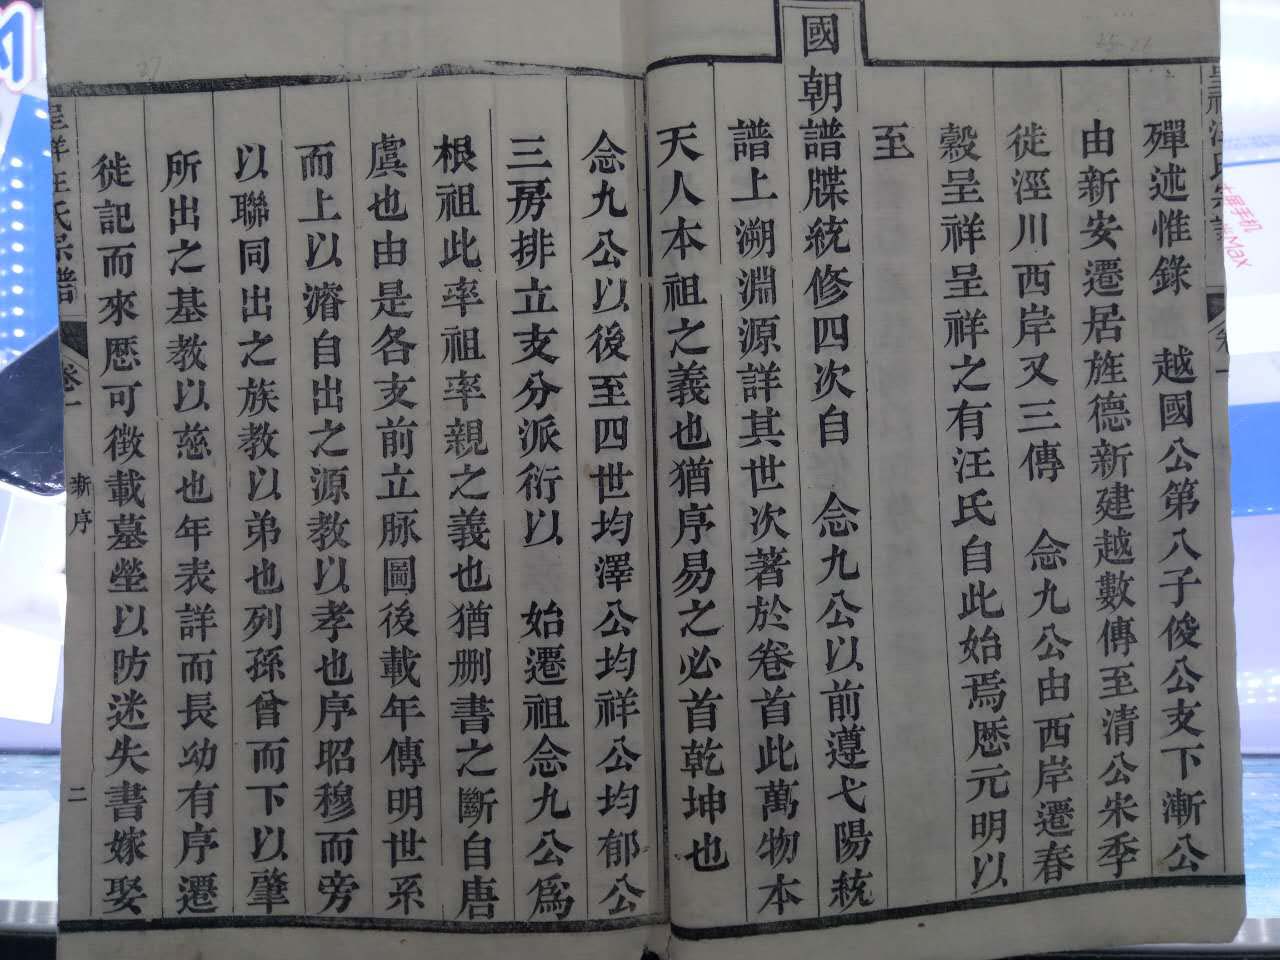 殫述惟錄　越國公第八子俊公支下漸公
由新安遷居旌德新建越數傳至清公宋季
徙涇川西岸又三傳　念九公由西岸遷春
穀呈祥呈祥之有汪氏自此始焉歷元明以
至
國朝譜牒統修四次自　念九公以前遵弋陽統
譜上溯淵源詳其世次著於卷首此萬物本
天人本祖之義也猶序易之必首乾坤也
念九公以後至四世均澤公均祥公均郁公
三房排立支分派衍以　始遷祖念九公爲
根祖此率祖率親之義也猶刪書之斷自唐
虞也由是各支前立脉圖後載年傳明世系
而上以濬自出之源教以孝也序昭穆而旁
以聯同出之族教以弟也列孫曾而下以肇
所出之基教以慈也年表詳而長幼有序遷
徙記而來歷可徵載墓塋以防迷失書嫁娶
呈祥汪氏宗譜
卷一
新序
二